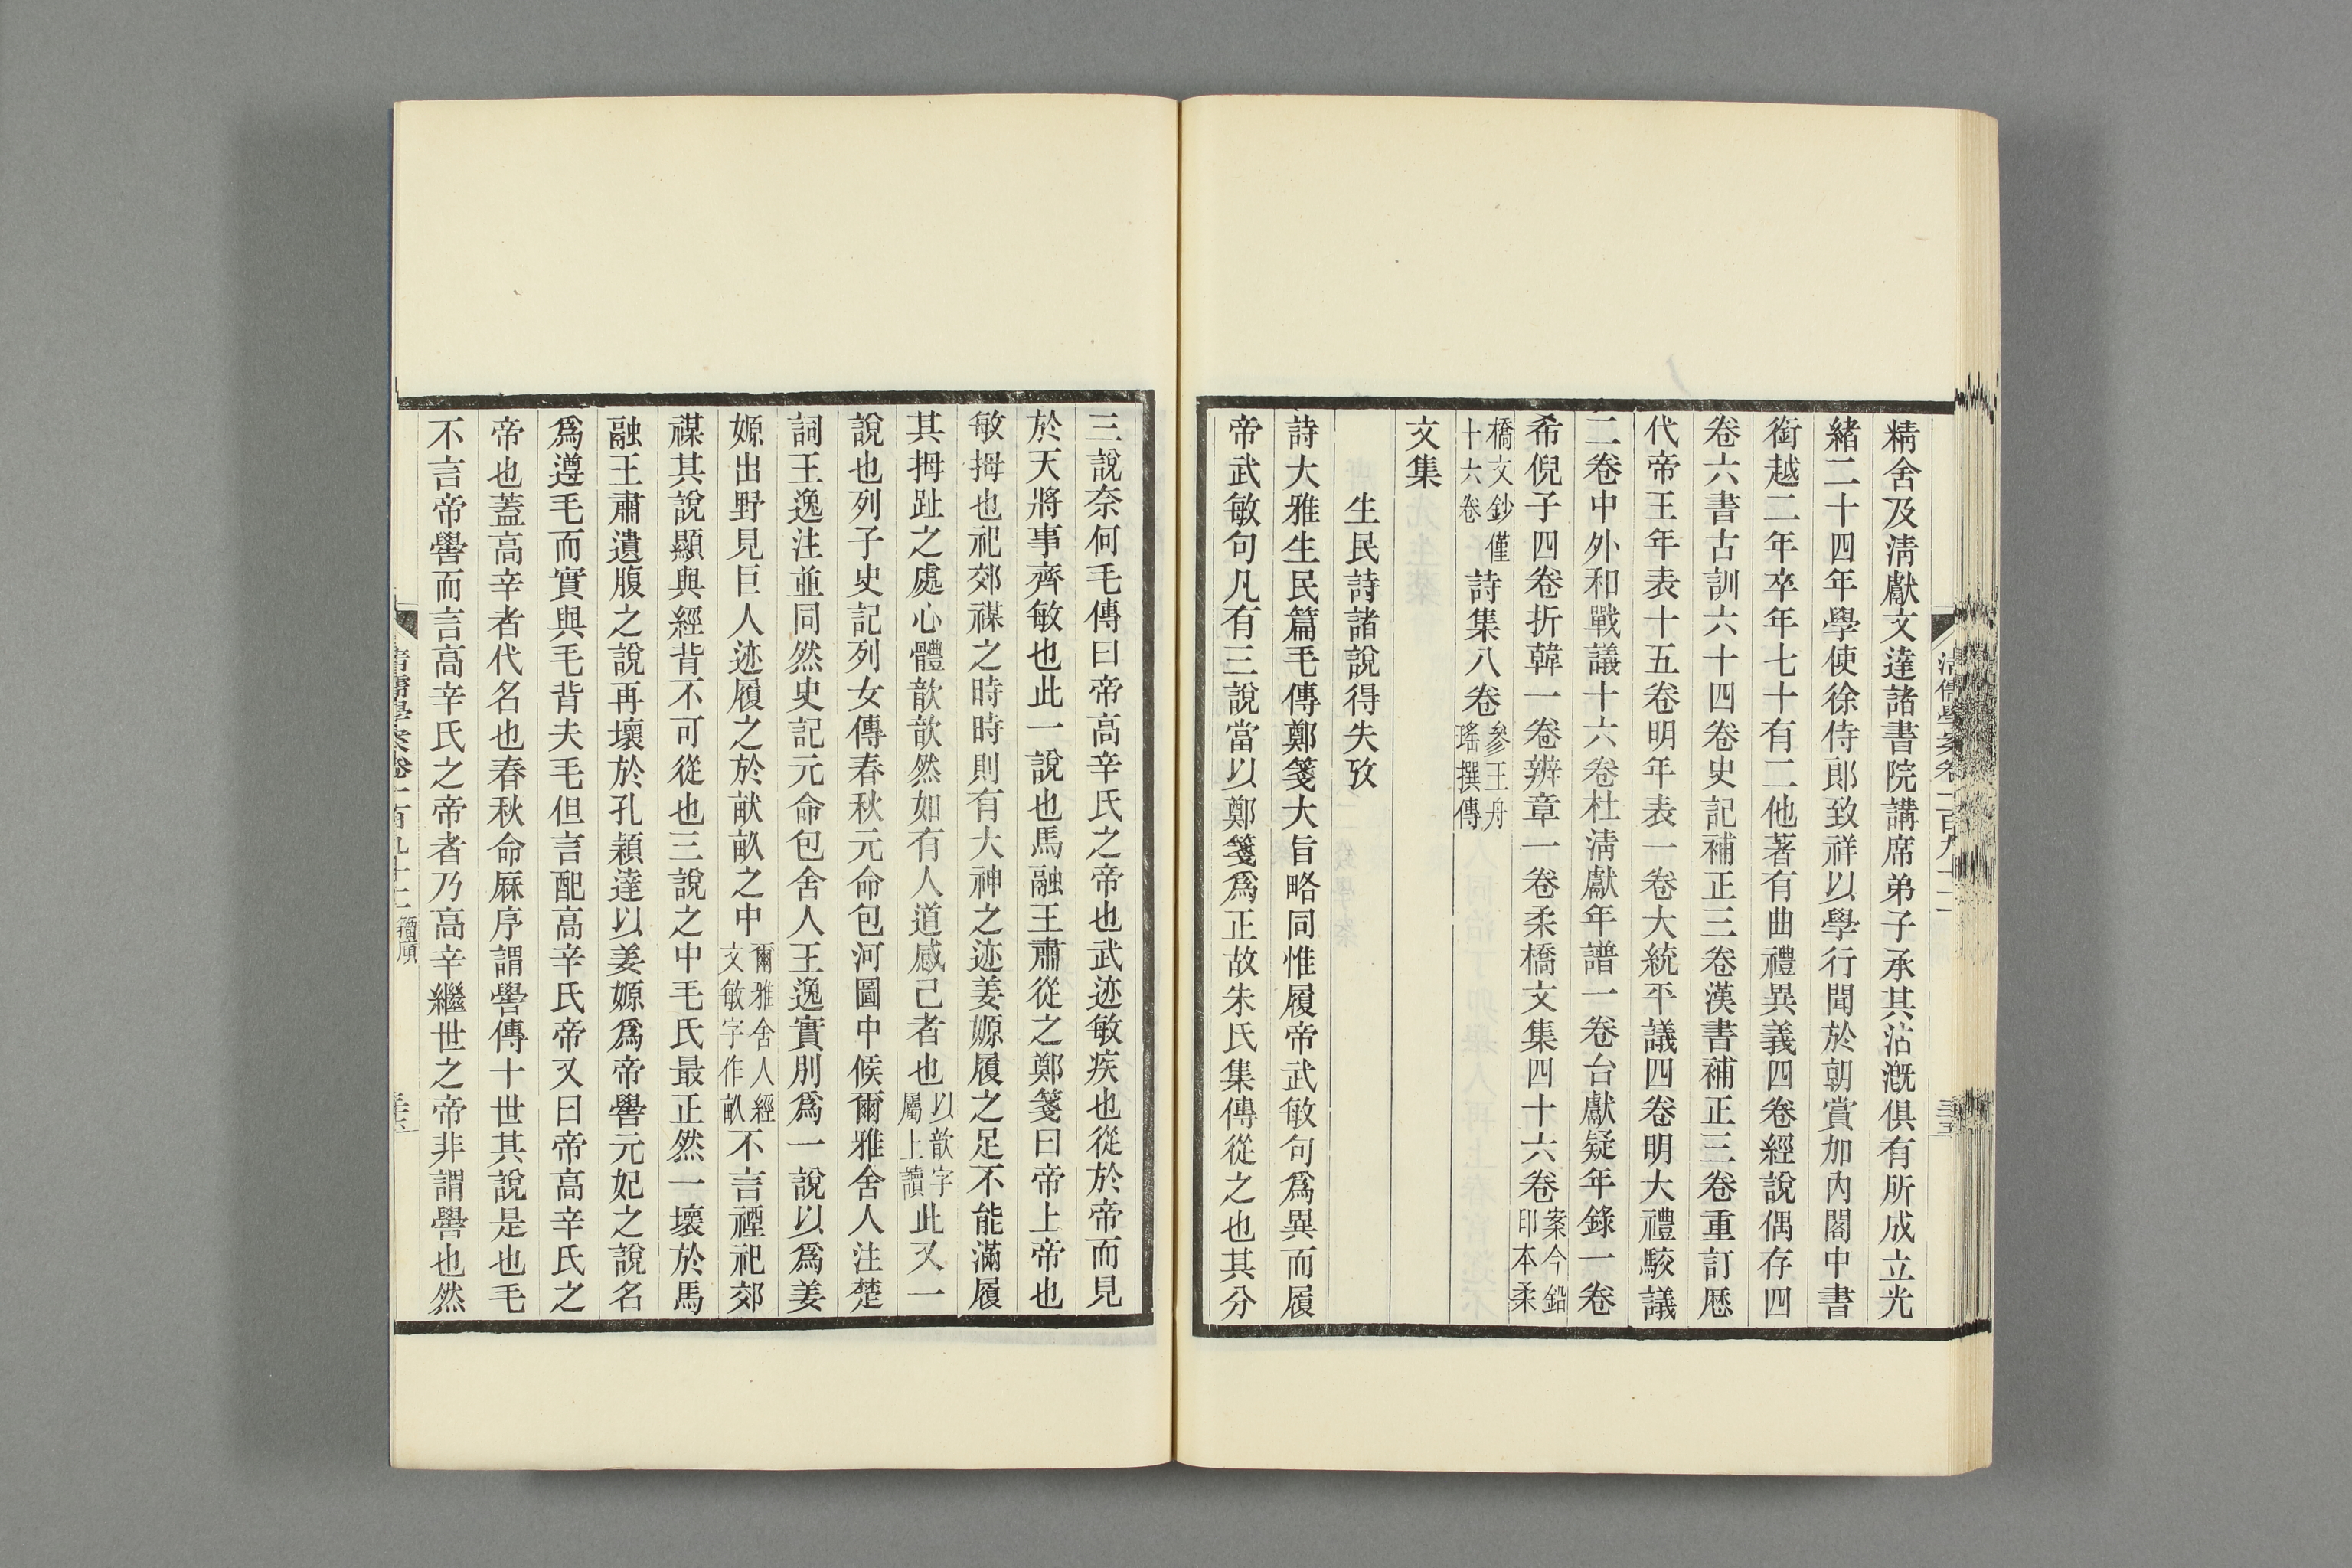 精舍及淸獻文達諸書院講席弟子承其沾漑俱有所成立光
緖二十四年學使徐侍郎致祥以學行聞於朝賞加內閣中書
銜越二年卒年七十有二他著有曲禮異義四卷經說偶存四
卷六書古訓六十四卷史記補正三卷漢書補正三卷重訂歷
代帝王年表十五卷明年表一卷大統平議四卷明大禮駁議
二卷中外和戰議十六卷杜淸獻年譜一卷台獻疑年錄一卷
希倪子四卷折韓一卷辨章一卷柔橋文集四十六卷案今鉛印本柔
橋文鈔僅十六卷詩集八卷參王舟瑤撰傳
文集
生民詩諸說得失攷
詩大雅生民篇毛傳鄭箋大旨略同惟履帝武敏句爲異而履
帝武敏句凡有三說當以鄭箋爲正故朱氏集傳從之也其分
三說奈何毛傳曰帝高辛氏之帝也武迹敏疾也從於帝而見
於天將事齊敏也此一說也馬融王肅從之鄭箋曰帝上帝也
敏拇也祀郊禖之時時則有大神之迹姜嫄履之足不能滿履
其拇趾之處心體歆歆然如有人道感己者也以歆字屬上讀此又一
說也列子史記列女傳春秋元命包河圖中候爾雅舍人注楚
詞王逸注並同然史記元命包舍人王逸實別爲一說以爲姜
嫄出野見巨人迹履之於畎畝之中爾雅舍人經文敏字作畝不言禋祀郊
禖其說顯與經背不可從也三說之中毛氏最正然一壞於馬
融王肅遺腹之說再壞於孔穎達以姜嫄爲帝嚳元妃之說名
爲遵毛而實與毛背夫毛但言配高辛氏帝又曰帝高辛氏之
帝也蓋高辛者代名也春秋命厤序謂嚳傳十世其說是也毛
不言帝嚳而言高辛氏之帝者乃高辛繼世之帝非謂嚳也然